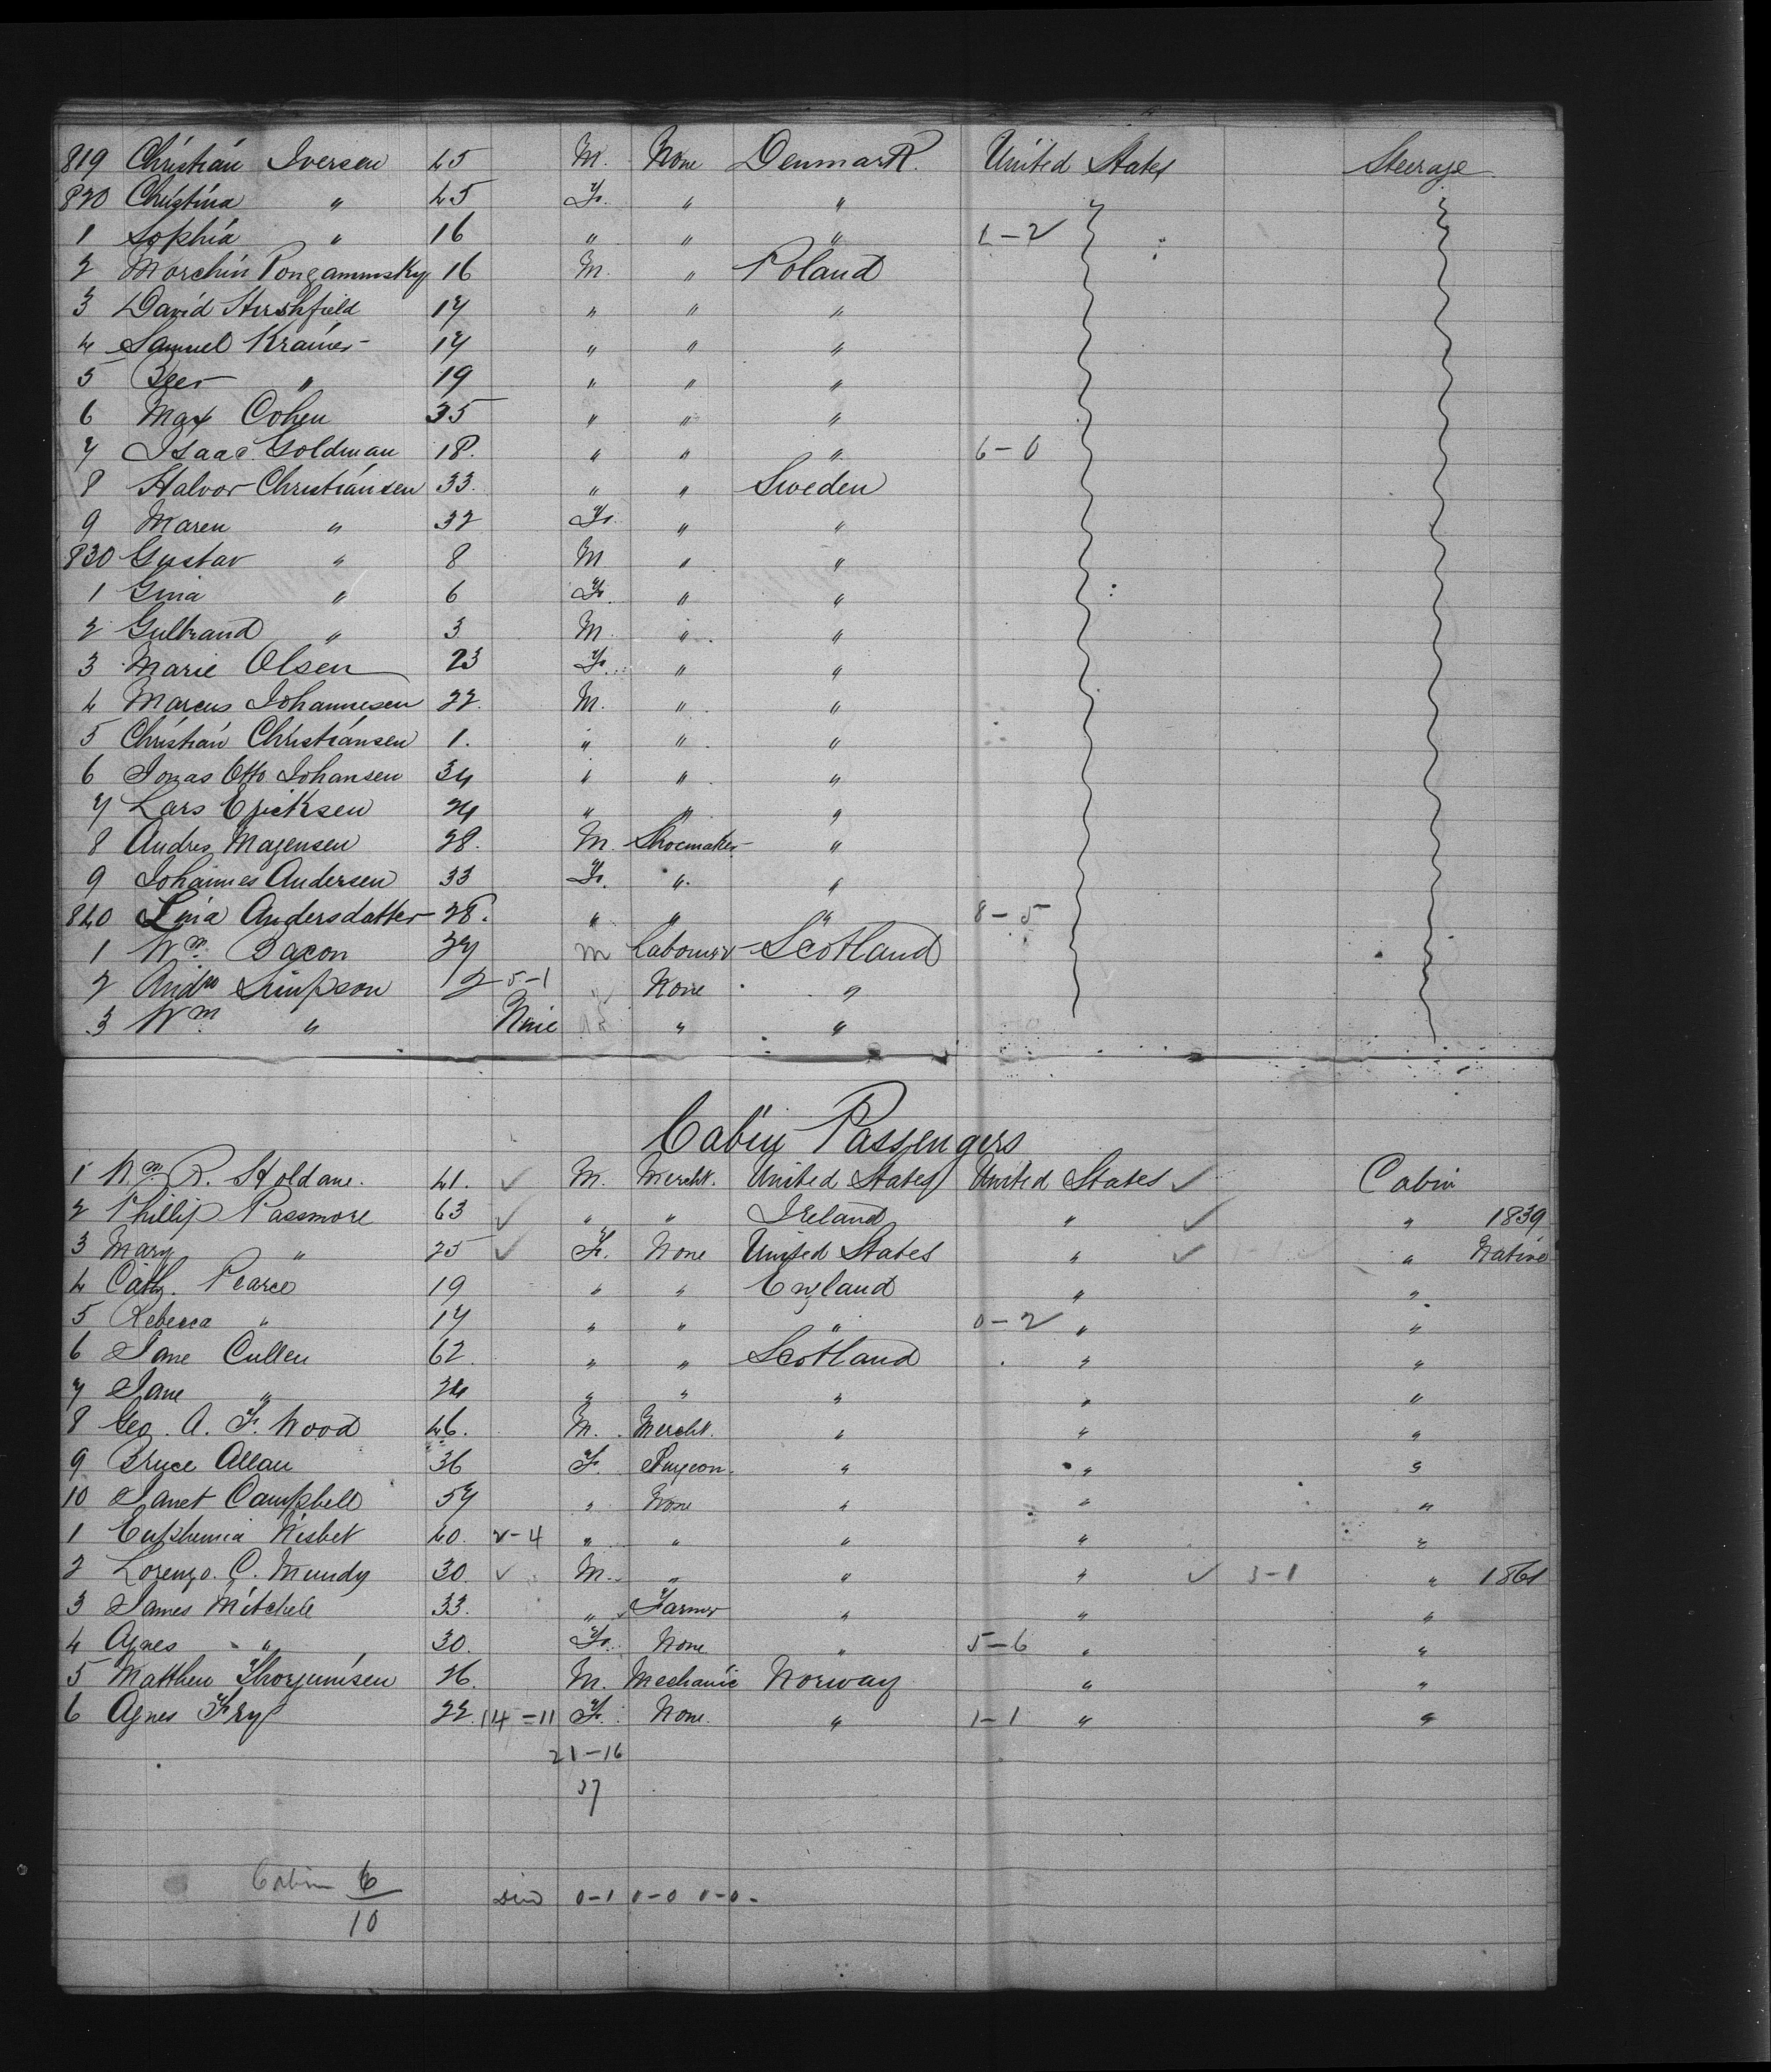 819 Christian Iversen 45 M. None Denmark. United States Steerage
820 Christina " 45 F. " "
1 Sophia " 16 " " " 1-2
2 Morchin 16 M. " Poland
3 David Hirshfield 17 " " "
4 Samuel Kramer 17 " " "
5 Beer " 19 " " "
6 Max Cohen 35 " " "
7 Isaac Goldman 18. " " " 6-0
8 Halvor Christiansen 33. " " Sweden
9 Maren " 32 F. " "
830 Gustav " 8 M " "
1 Gina " 6 F. " "
2 Gulbrand " 3 M. " "
3 Marie Olsen 23 F. " "
4 Marcus Johannesen 22. M. " "
5 Christian Christiansen 1. " " "
6 Jonas Otto Johansen 34 " " "
7 Lars Ericksen 24 " " "
8 Andres Magensen 28. M. Shoemaker "
9 Johannes Andersen 33 F. " "
840 Lina Andersdatter 28. " " " 8-5
1 Wm. Bacon 37 m Labourer Scotland
2 Andw Simpson 12 5-1 None "
3 Wm " " "
Cabin Passengers
1 Wm. R. Holdane. 41. ✓ M. Mercht. United States United States ✓ Cabin
2 Phillip Passmore 63 ✓ " " Ireland " ✓ " 1839
3 Mary " 25 ✓ F. None United States " ✓ " Native
4 Cath. Pearce 19 " " England " "
5 Rebecca " 17 " " " 0-2 " "
6 Jane Cullen 62. " " Scotland " "
7 Jane " 24 " " " " "
8 Geo. A. F. Wood 46. M. Mercht. " " "
9 Bruce Allan 36 F. Surgeon. " " "
10 Janet Campbell 57 " None " " "
1 Euphemia Nisbet 40. 2-4 " " " " "
2 Lorenzo. C. Mundy 30. ✓ M. " " " ✓ 3-1 " 1861
3 James Mitchell 33. " Farmer " " "
4 Agnes " 30. F. None " 5-6 " "
5 Matthew 26. M. Mechanic Norway " "
6 Agnes Fry 22. 14=11 F. None. " 1-1 " "
21-16
37
Cabin 6
10
0-1 1-0 1-0-